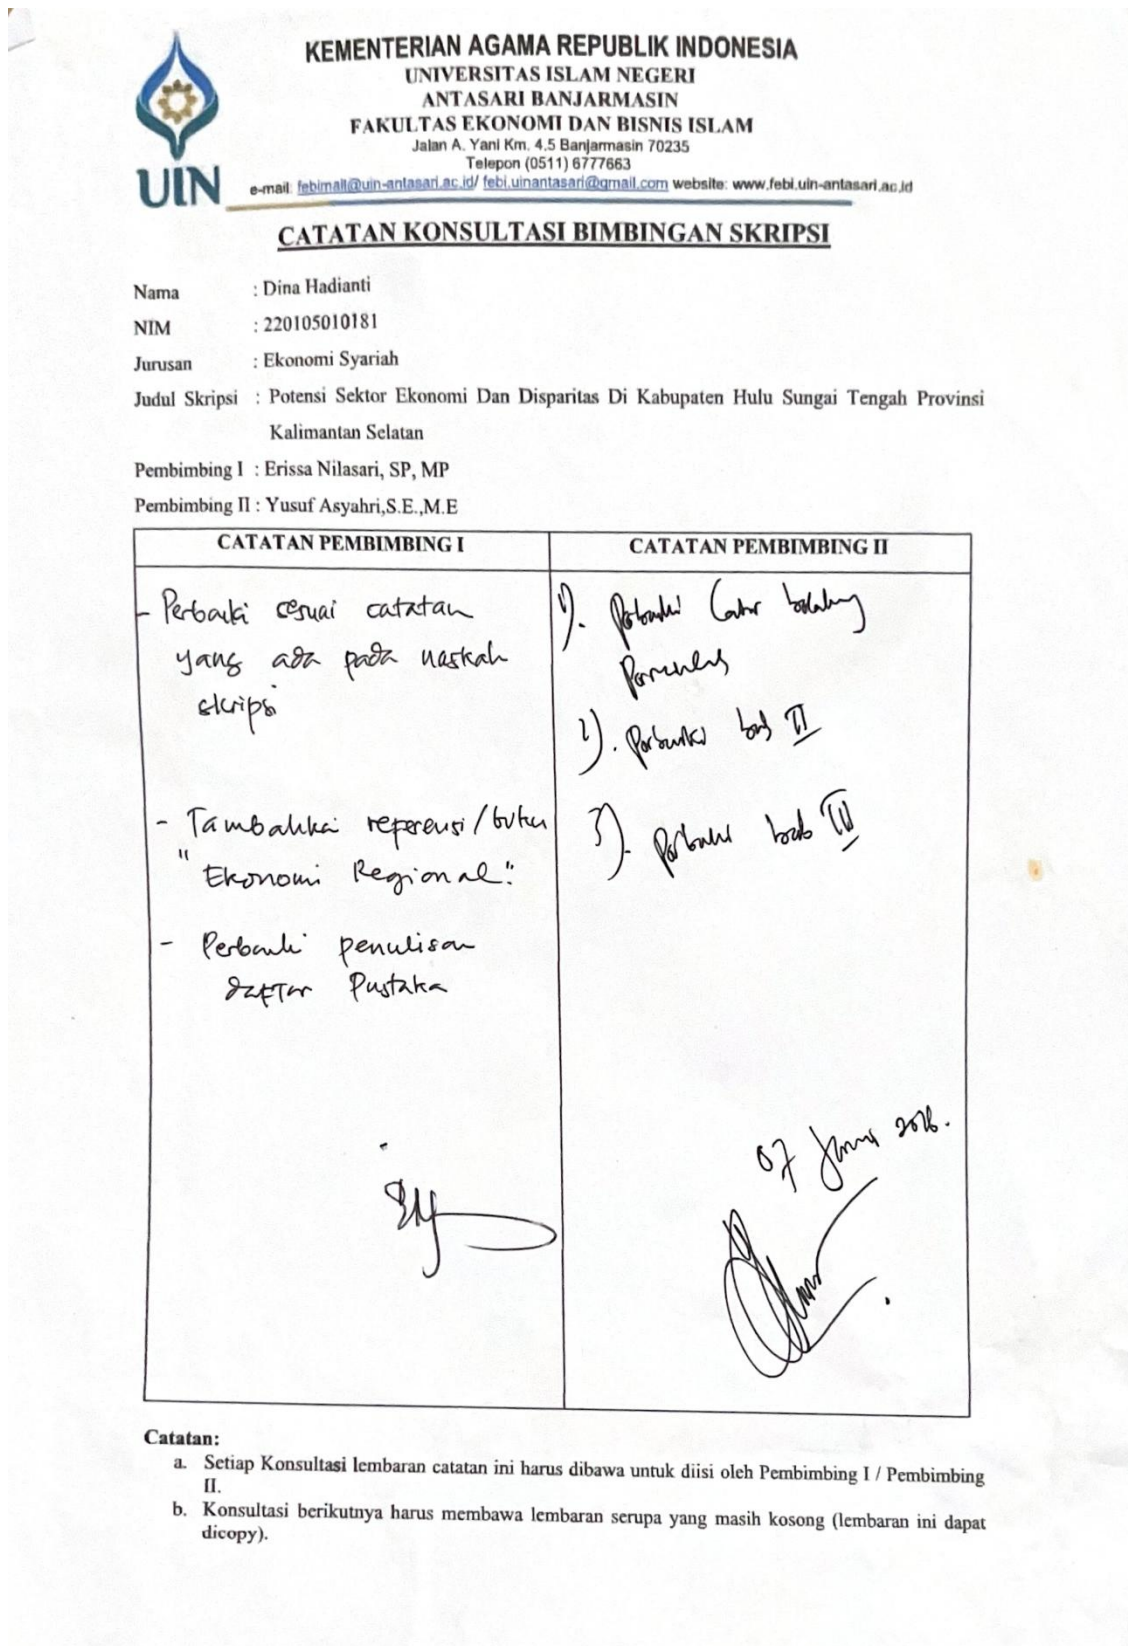 KEMENTERIAN AGAMA REPUBLIK INDONESIA
UNIVERSITAS ISLAM NEGERI
ANTASARI BANJARMASIN
FAKULTAS EKONOMI DAN BISNIS ISLAM
Jalan A. Yani Km. 4,5 Banjarmasin 70235
Telepon (0511) 6777663
UIN
e-mail: febimail@uin-antasari.ac.id/ febi.uinantasari@gmail.com website: www.febi.uin-antasari.ac.id
CATATAN KONSULTASI BIMBINGAN SKRIPSI
Nama : Dina Hadianti
NIM : 220105010181
Jurusan : Ekonomi Syariah
Judul Skripsi : Potensi Sektor Ekonomi Dan Disparitas Di Kabupaten Hulu Sungai Tengah Provinsi
Kalimantan Selatan
Pembimbing I : Erissa Nilasari, SP, MP
Pembimbing II : Yusuf Asyahri,S.E.,M.E
CATATAN PEMBIMBING I
- Perbaiki sesuai catatan
yang ada pada naskah
skripsi
- Tambahkan referensi/buku
"Ekonomi Regional".
- Perbaiki penulisan
daftar Pustaka
CATATAN PEMBIMBING II
1). Perbaiki latar belakang
2). Perbaiki bab II
3). Perbaiki bab III
07 Januari 2026.
Catatan:
a. Setiap Konsultasi lembaran catatan ini harus dibawa untuk diisi oleh Pembimbing I / Pembimbing
II.
b. Konsultasi berikutnya harus membawa lembaran serupa yang masih kosong (lembaran ini dapat
dicopy).